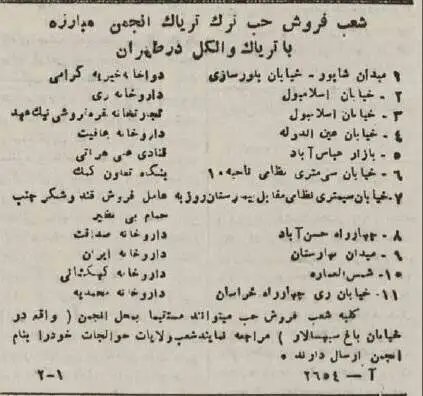 شعب فروش حب ترك ترياك انجمن مبارزه
با ترياك والكل در طهران
۱ ميدان شاپور - خيابان بلورسازى دواخانه خيريه گرامى
۲ - خيابان اسلامبول داروخانه رى
۳ - خيابان اسلامبول تجارتخانه قره فروشى نيك عهد
۴ - خيابان عين الدوله داروخانه عافيت
۵ - بازار عباس آباد قنادى على هراتى
۶ - خيابان سى مترى نظامى ناحيه ۱۰ بنگاه تعاون كمك
۷- خيابان سيمترى نظامى مقابل بيمارستان روزبه عامل فروش قند وشكر جنب
حمام بى نظير
۸ - چهارراه حسن آباد داروخانه صداقت
۹ - ميدان بهارستان داروخانه ايران
۱۰- شمس العماره داروخانه كهكشانى
۱۱- خيابان رى چهارراه خراسان داروخانه محمديه
كليه شعب فروش حب ميتوانند مستقيما بمحل انجمن ( واقع در
خيابان باغ سپهسالار ) مراجعه نمايند شعب ولايات حوالجات خودرا بنام
انجمن ارسال دارند .
آ - ۲۶۵۴ ۲-۱